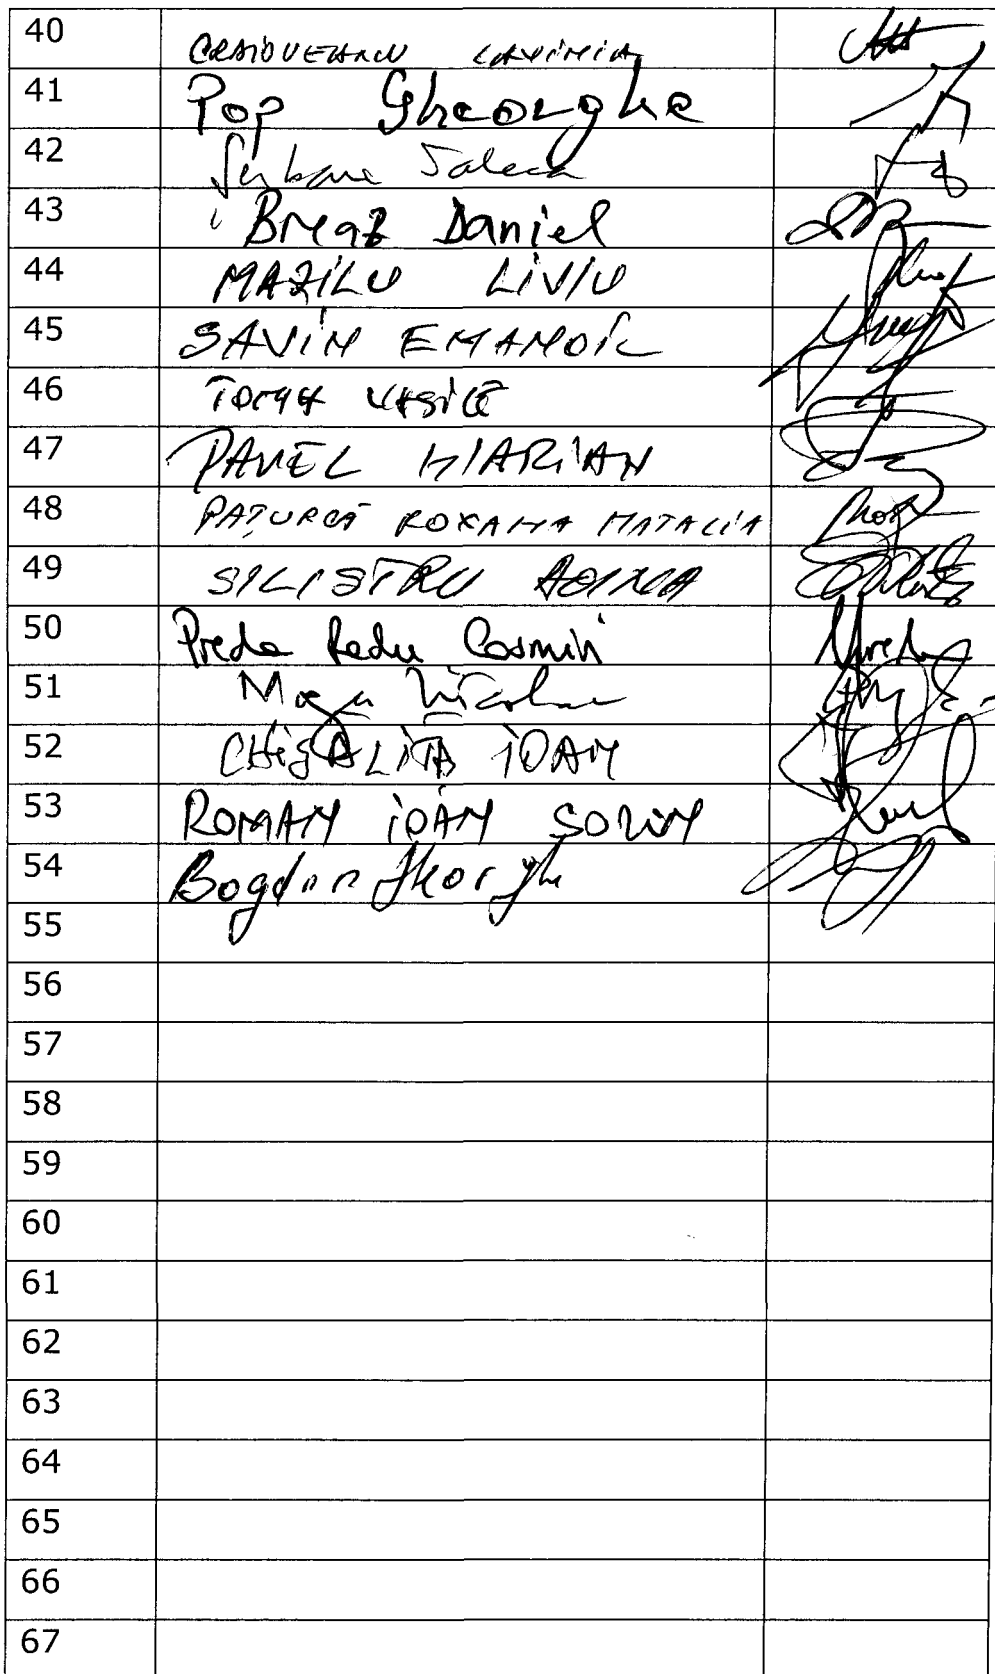 40 CRAIOVEANU LAVINIA
41 Pop Gheorghe
42
43 Breaz Daniel
44 MAZILU LIVIU
45 SAVIN EMANOIL
46 TOMA VASILE
47 PAVEL MARIAN
48 PAȚURCĂ ROXANA NATALIA
49 SILISTRU DOINA
50 Preda Radu Cosmin
51 Nicolae
52 CHISALIȚA IOAN
53 ROMAN IOAN SORIN
54 Bogdan Gheorghe
55
56
57
58
59
60
61
62
63
64
65
66
67